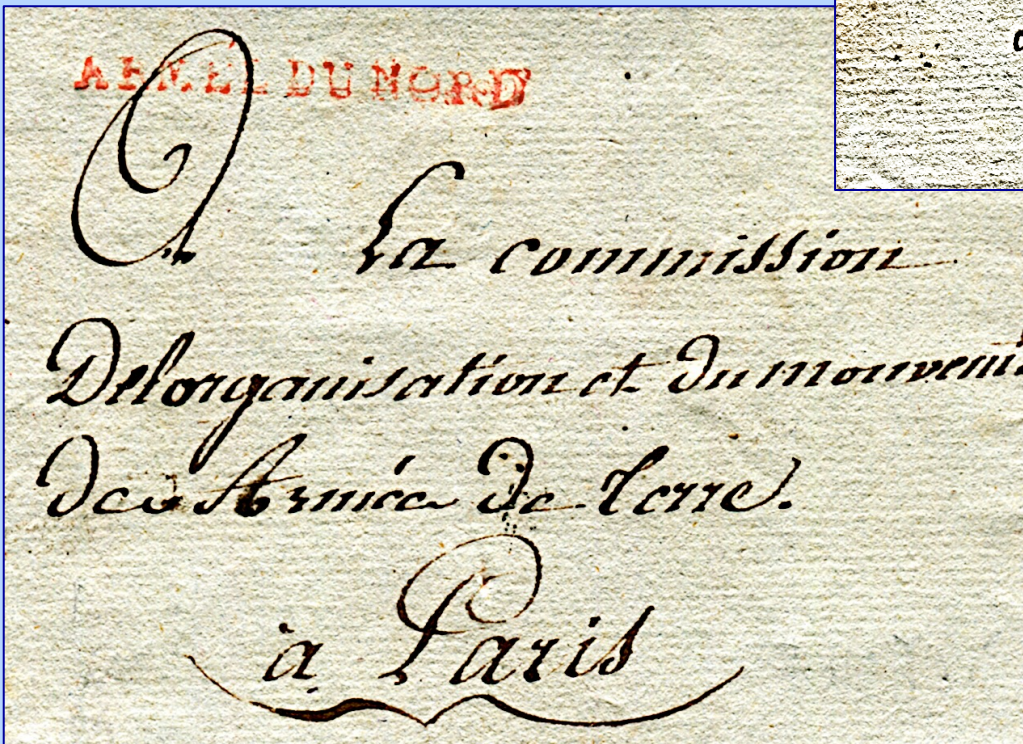 ARMÉE DU NORD
A la commission
Delorganisation et du mouvem.
des Armées de terre.
à Paris